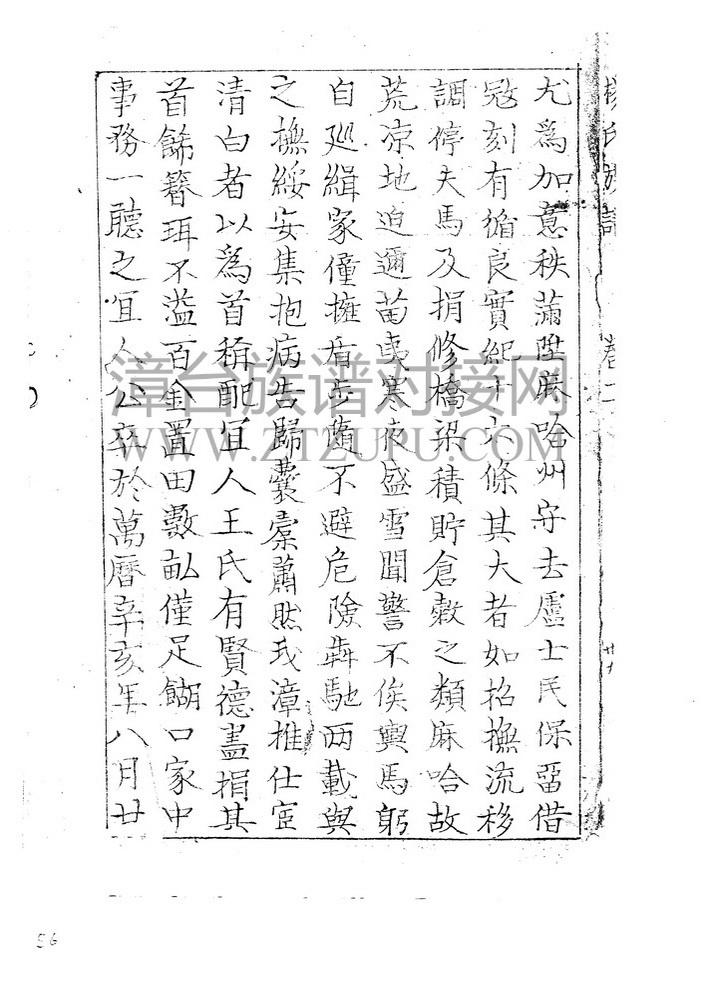 楊氏族譜 卷二
尤為加意秩滿陞麻哈州守去廬士民保留借
冦刻有循良實紀十六條其大者如招撫流移
調停夫馬及捐修橋梁積貯倉穀之類麻哈故
荒凉地迫邇苗夷寒夜盛雪聞警不俟輿馬躬
自廵緝家僮擁盾步隨不避危險犇馳两載與
之撫綏安集抱病告歸囊橐蕭然我漳推仕宦
清白者以為首稱配宜人王氏有賢德盡捐其
首餙簪珥不溢百金置田數畝僅足餬口家中
事務一聽之宜人公卒於萬曆辛亥年八月廿
漳台族谱对接网
WWW.ZTZUPU.COM
56